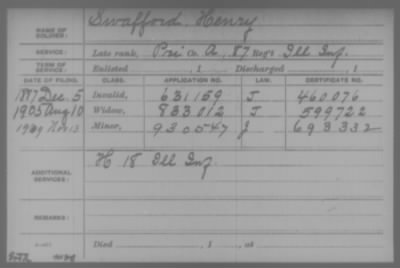 NAME OF SOLDIER: Swafford, Henry
SERVICE: Late rank, Pri Co. A, 87 Reg't Ill Inf.
TERM OF SERVICE: Enlisted , 1 Discharged , 1
DATE OF FILING. CLASS. APPLICATION NO. LAW. CERTIFICATE NO.
1887 Dec. 5 Invalid, 631159 J 460076
1905 Aug 10 Widow, 833012 J 599722
Nov 13 Minor, 930547 J 693332
ADDITIONAL SERVICES: H 18 Ill Inf
REMARKS:
Died , 1 , at